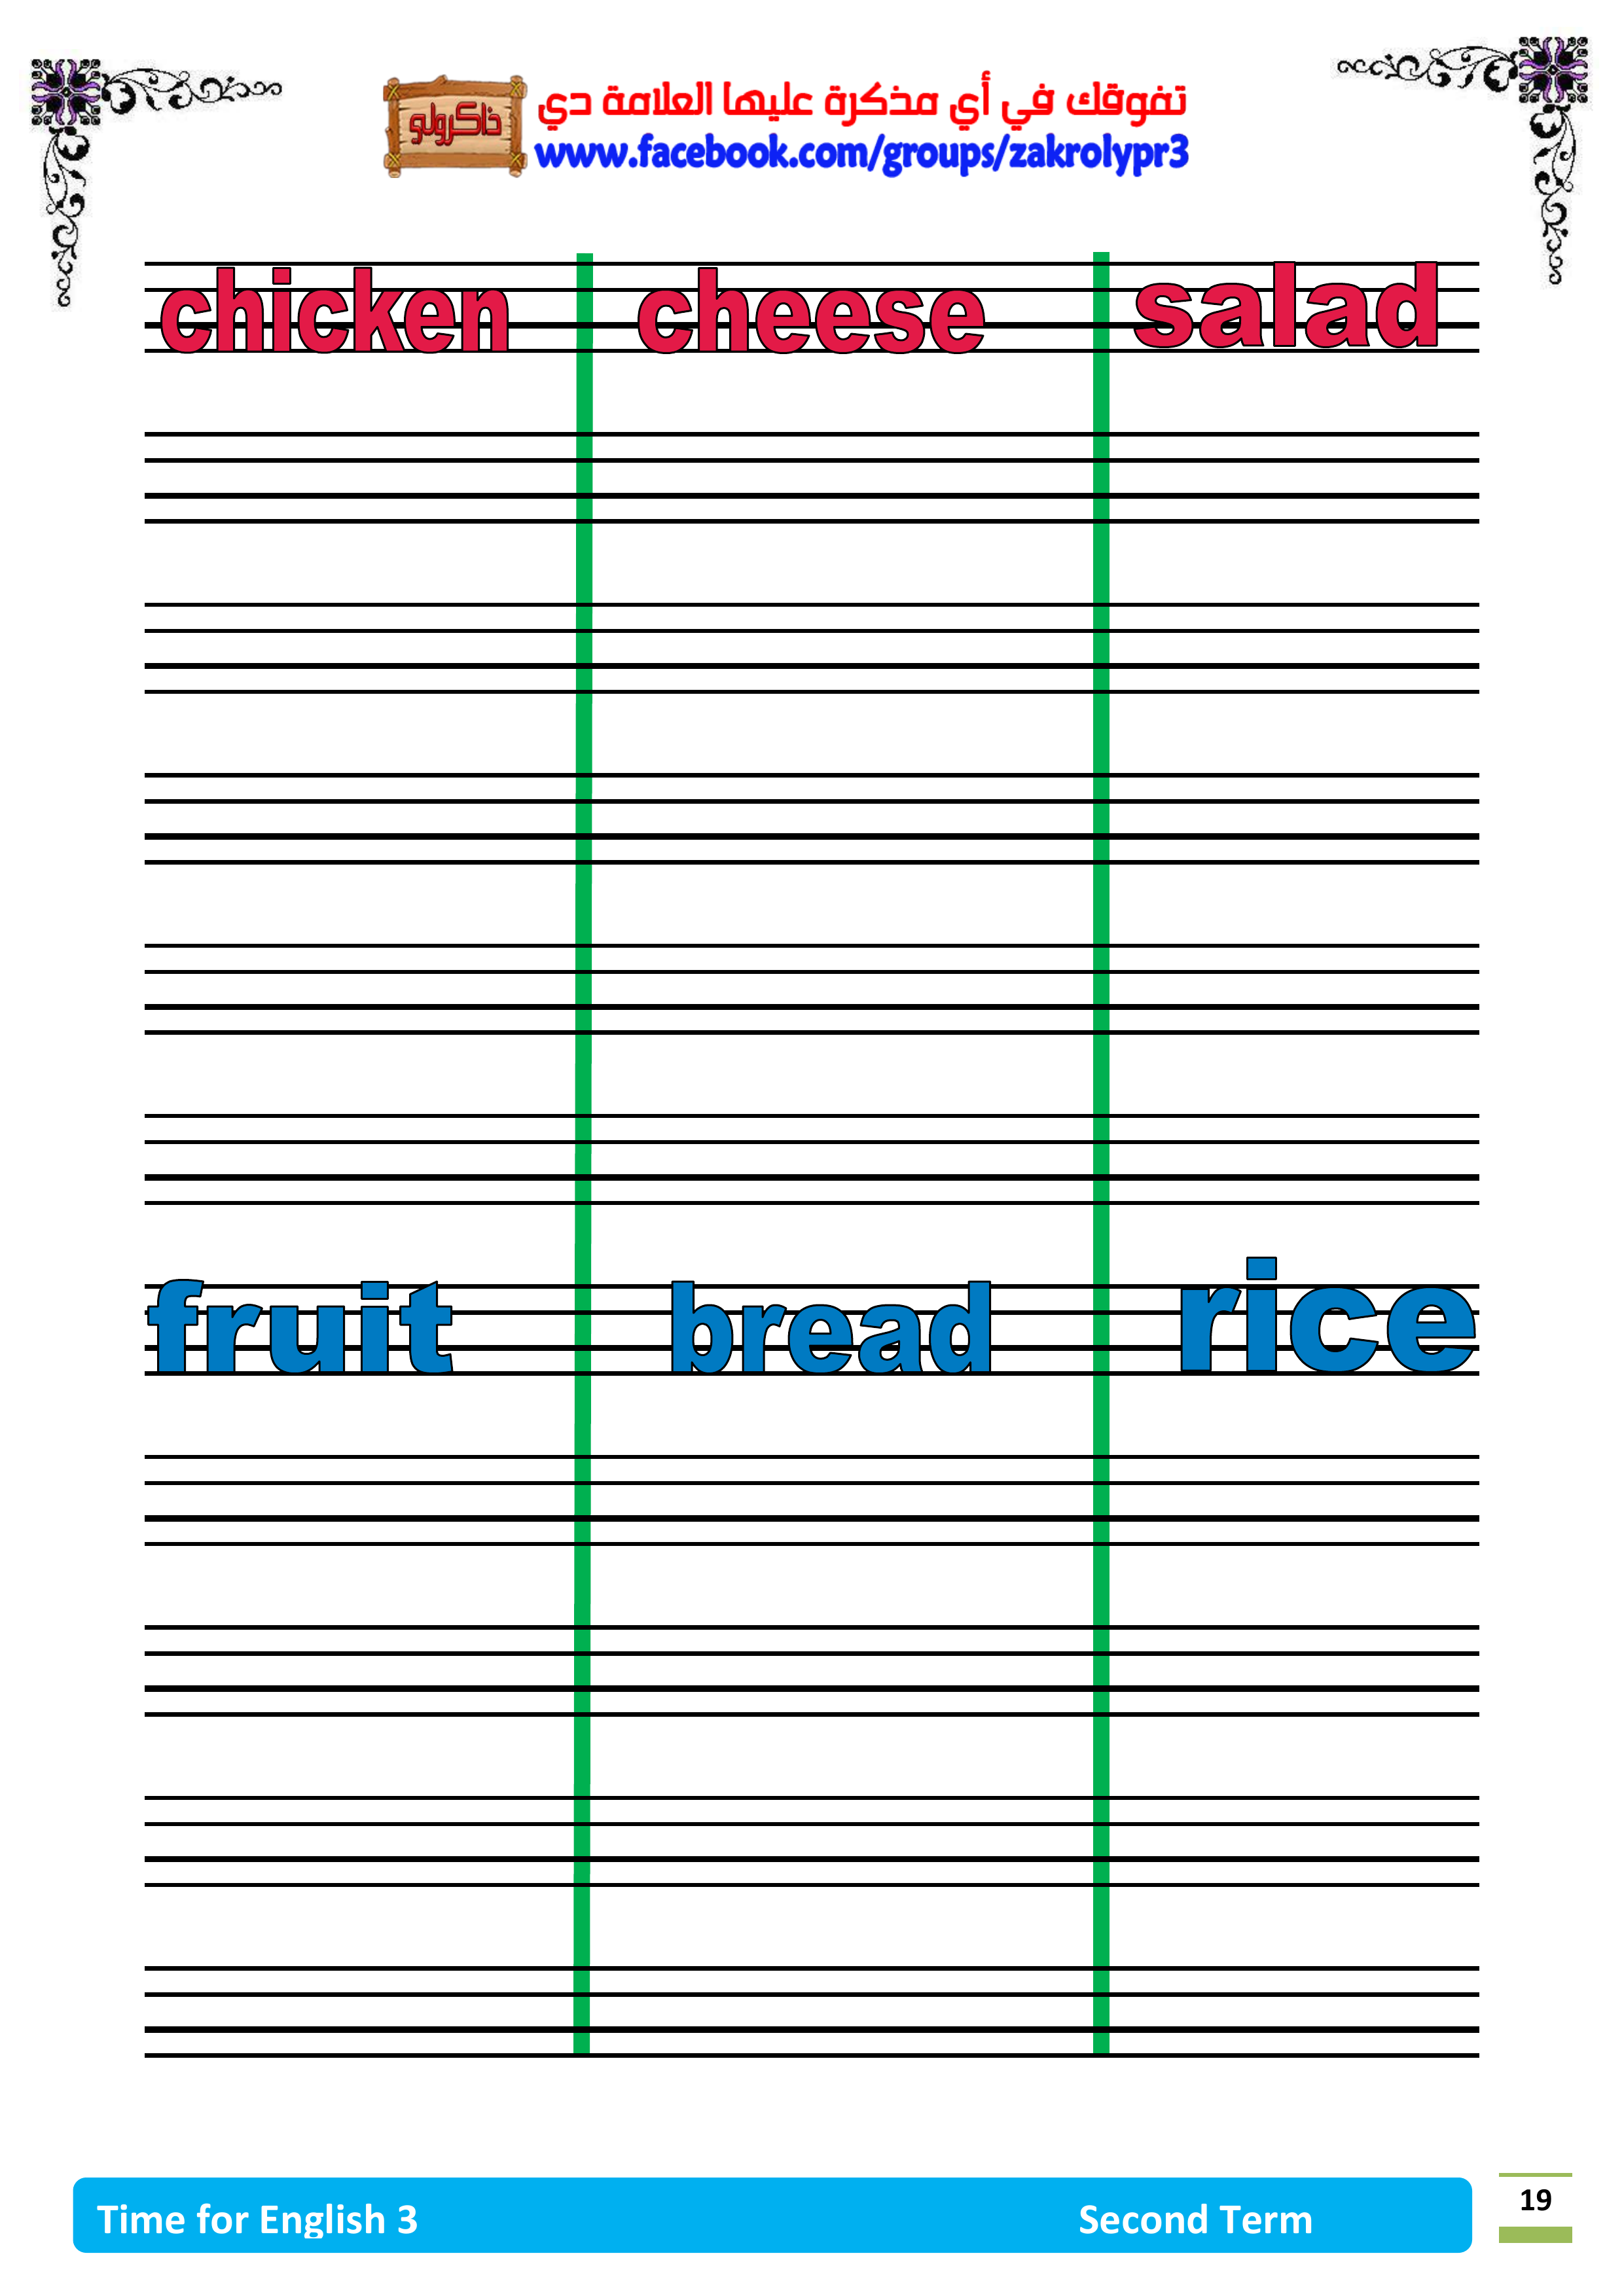 ذاكرولي
تفوقك في أي مذكرة عليها العلامة دي
www.facebook.com/groups/zakrolypr3
chicken cheese salad
fruit bread rice
Time for English 3 Second Term
19